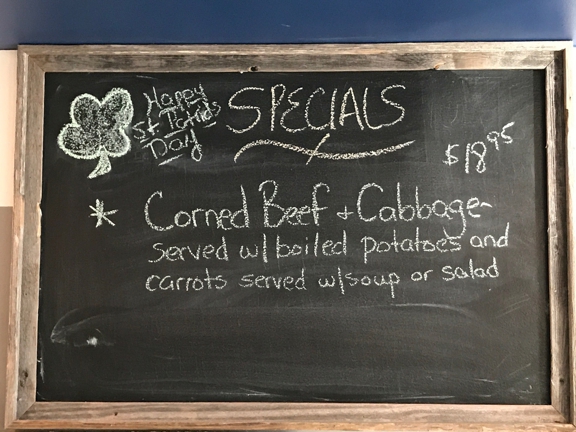 Happy
St. Patrick's
Day
SPECIALS
$18.95
* Corned Beef + Cabbage -
served w/boiled potatoes and
carrots served w/soup or salad